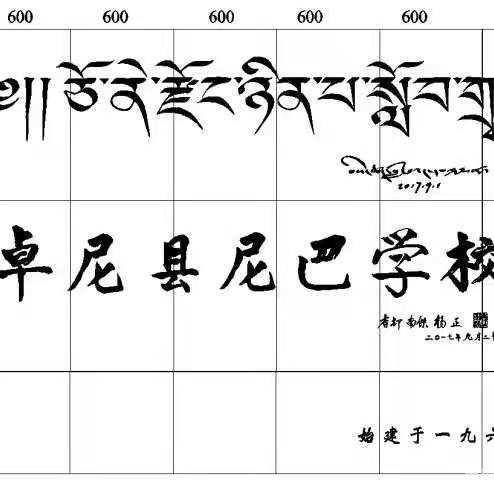 600 600 600 600 600
།། ཅོ་ནེ་རྫོང་ཉིན་པ་སློབ་
2017.9.1
卓尼县尼巴学校
杨正
二〇一七年九月二
始建于一九六